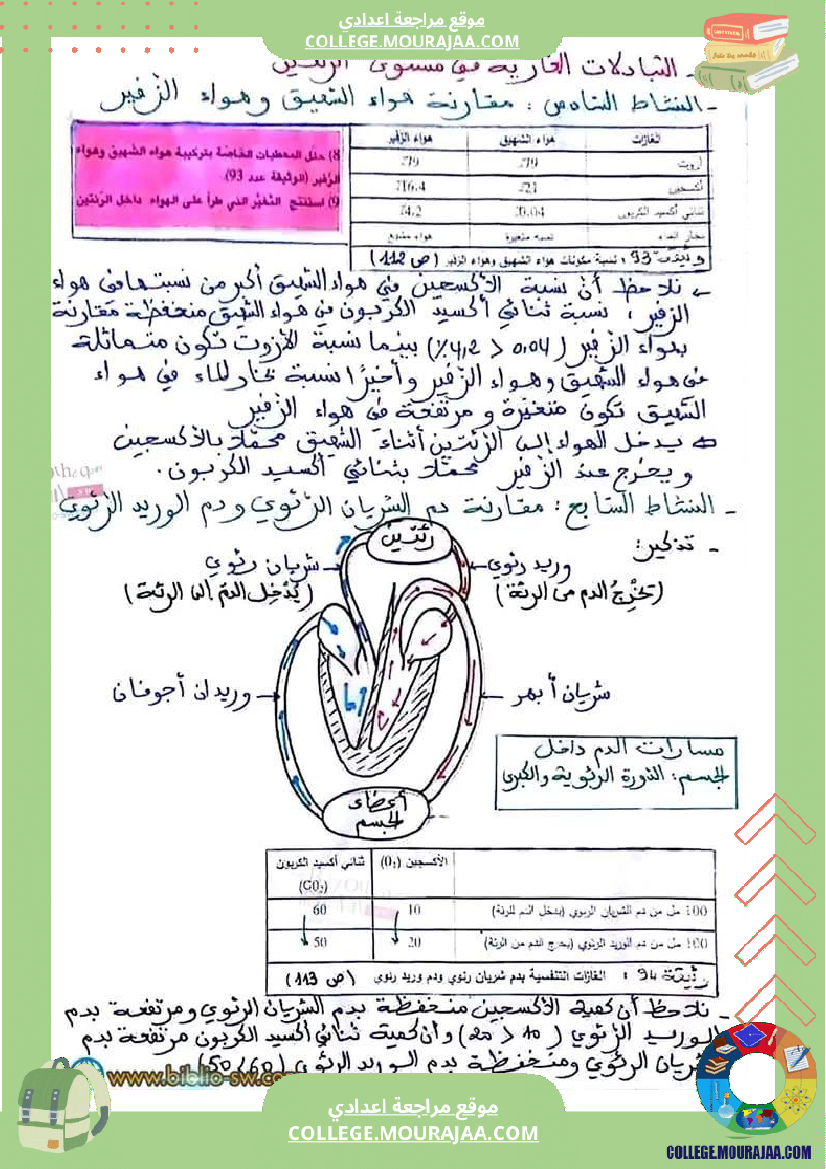 موقع مراجعة اعدادي
COLLEGE.MOURAJAA.COM
- التبادلات الغازية في مستوى الرئتين
- النشاط السادس : مقارنة هواء الشهيق وهواء الزفير
8) حلل المعطيات الخاصة بتركيبة هواء الشهيق وهواء
الزفير (الوثيقة عدد 93).
9) استنتج التغير الذي طرأ على الهواء داخل الرئتين
الغازات هواء الشهيق هواء الزفير
أزوت %79 %79
أكسجين %21 %16.4
ثنائي أكسيد الكربون %0.04 %4.2
بخار الماء نسبة متغيرة هواء مشبع
وثيقة 93 : نسبة مكونات هواء الشهيق وهواء الزفير (ص 112)
نلاحظ أن نسبة الأكسجين في هواء الشهيق أكبر من نسبتها في هواء
الزفير ، نسبة ثنائي أكسيد الكربون في هواء الشهيق منخفظة مقارنة
بهواء الزفير (0,04 < 4,2%) بينما نسبة الأزوت تكون متماثلة
في هواء الشهيق وهواء الزفير وأخيرًا نسبة بخار الماء في هواء
الشهيق تكون متغيرة و مرتفعة في هواء الزفير
⇐ يدخل الهواء إلى الرئتين أثناء الشهيق محملا بالأكسجين
ويخرج عند الزفير محملا بثنائي أكسيد الكربون.
- النشاط السابع : مقارنة دم الشريان الرئوي ودم الوريد الرئوي
- تذكير:
رئتين
شريان رئوي
(يُدْخِل الدم إلى الرئة)
وريد رئوي
(تخْرِجُ الدم من الرئة)
وريدان أجوفان
شريان أبهر
مسارات الدم داخل
الجسم: الدورة الرئوية والكبرى
أعضاء
الجسم
الأكسجين (O₂) ثنائي أكسيد الكربون
(CO₂)
100 مل من دم الشريان الرئوي (يدخل الدم للرئة) 10 60
100 مل من دم الوريد الرئوي (يخرج الدم من الرئة) 20 50
وثيقة 94 : الغازات التنفسية بدم شريان رئوي ودم وريد رئوي (ص 113)
- نلاحظ أن كمية الأكسجين منخفظة بدم الشريان الرئوي ومرتفعة بدم
الوريد الرئوي (10 < 20) وأن كمية ثنائي أكسيد الكربون مرتفعة بدم
شريان الرئوي ومنخفظة بدم الوريد الرئوي (60 / 50)
www.biblio-sw.com
موقع مراجعة اعدادي
COLLEGE.MOURAJAA.COM
COLLEGE.MOURAJAA.COM